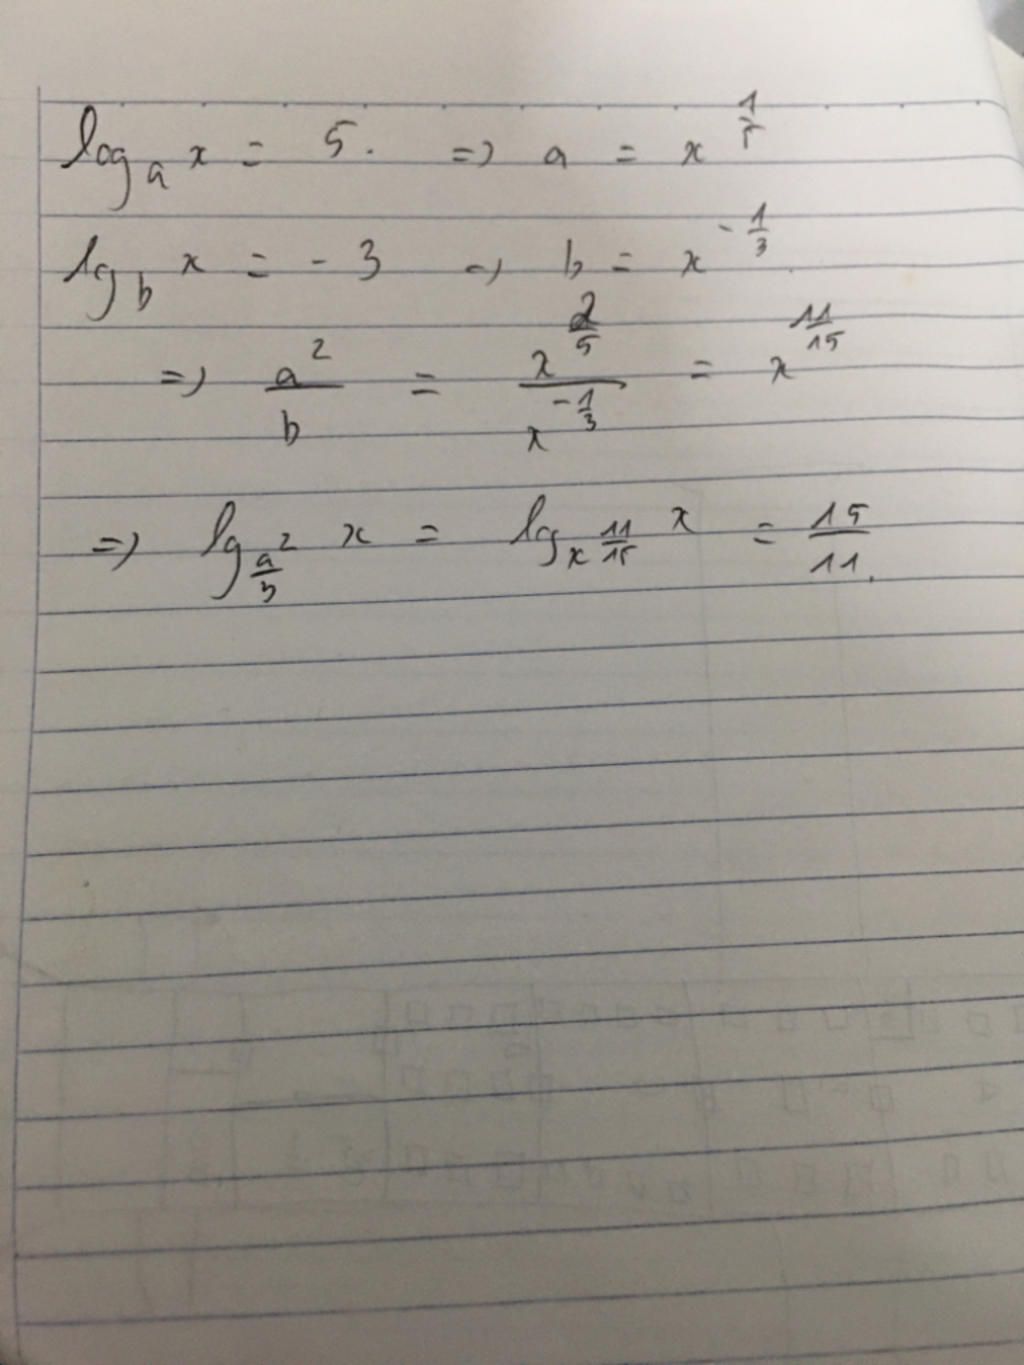 log_a x = 5. => a = x^{1/5}
lg_b x = -3 => b = x^{-1/3}
=> a^2/b = x^{2/5}/x^{-1/3} = x^{11/15}
=> lg_{a^2/b} x = lg_{x^{11/15}} x = 15/11.